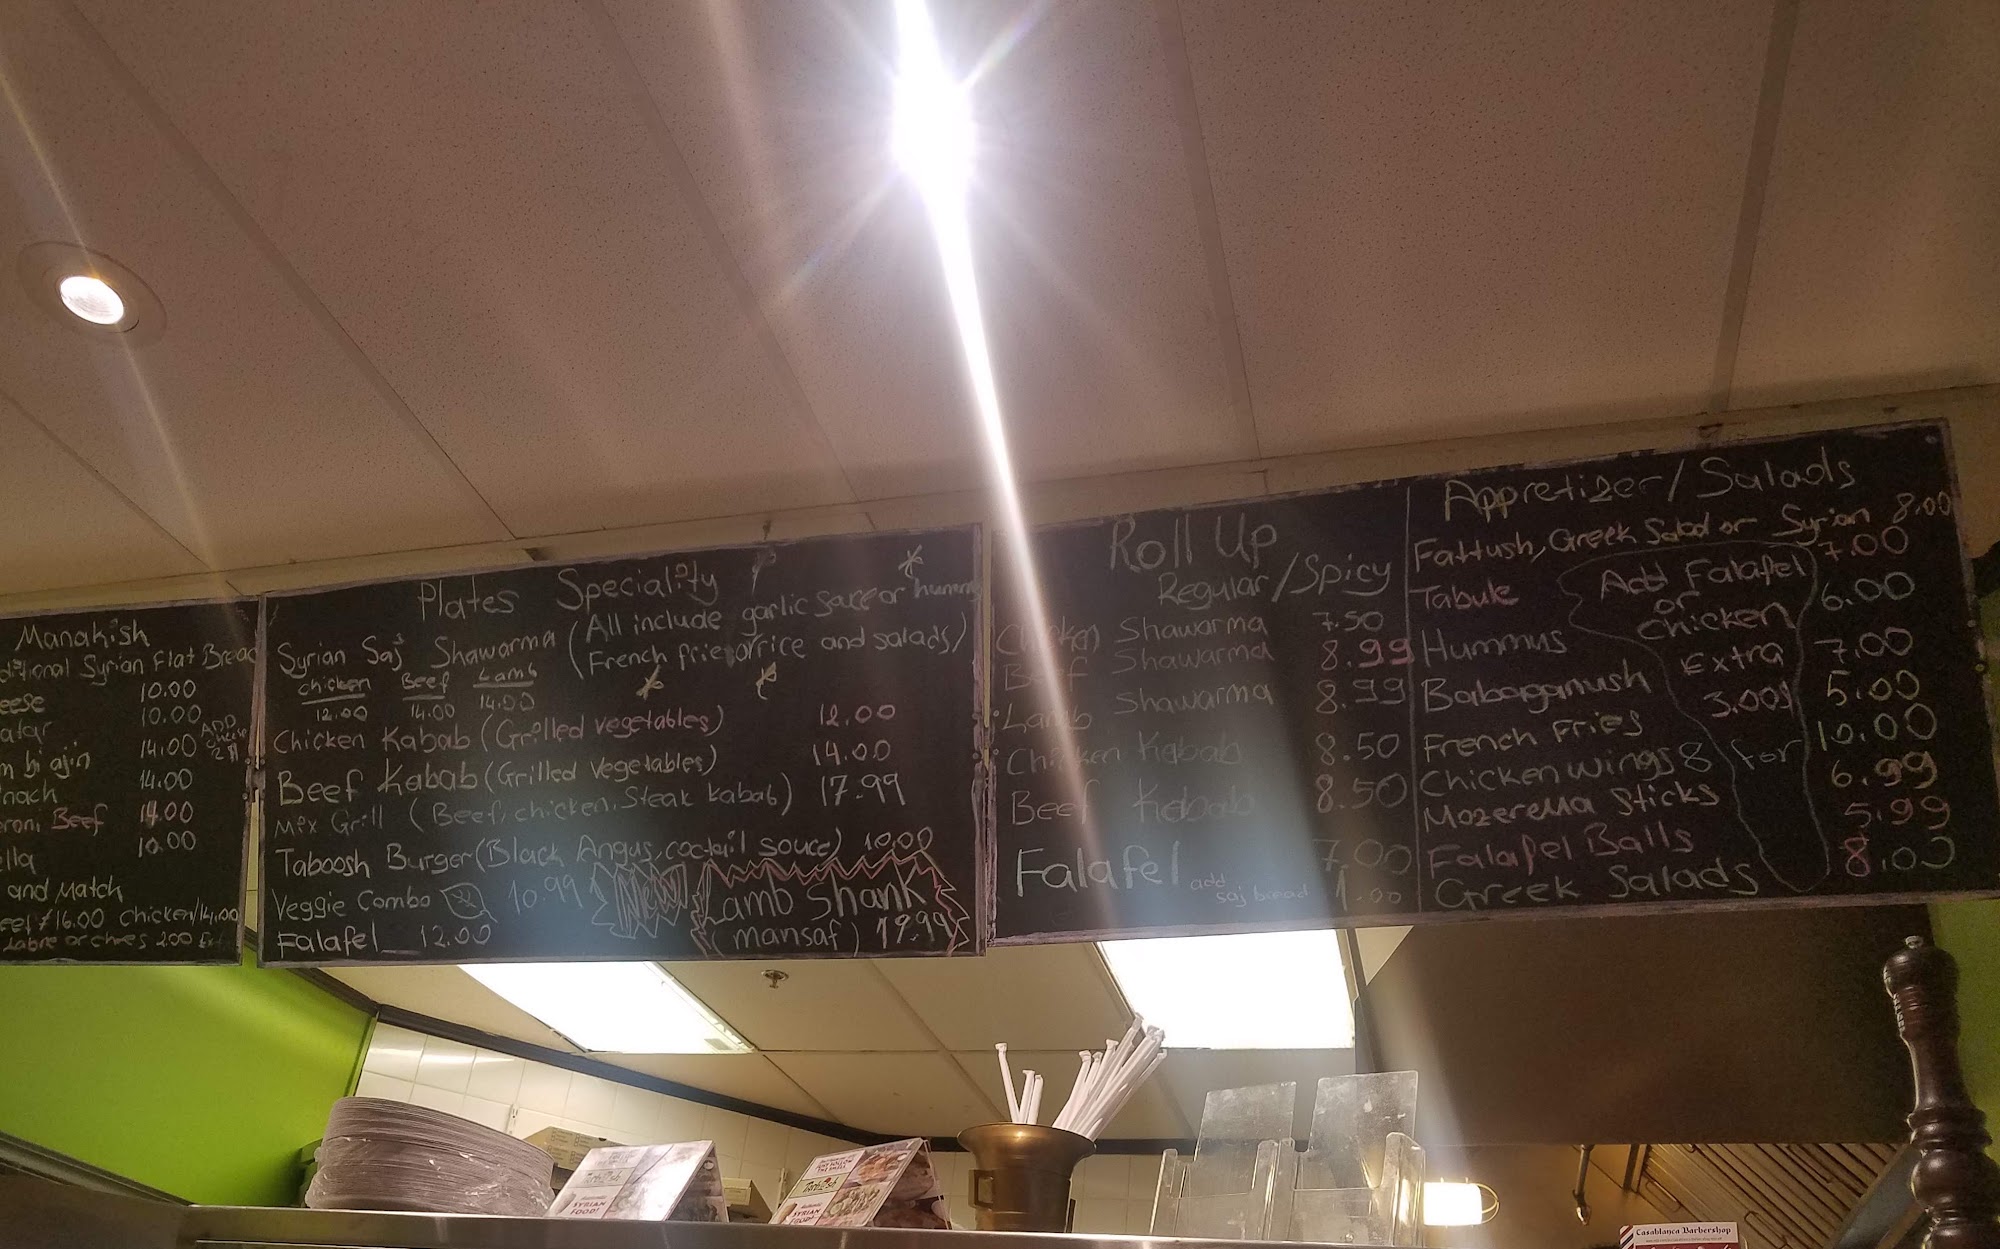 Manakish
Syrian Flat Bread
10.00
10.00
ADD
14.00
14.00
Beef 14.00
10.00
and Match
16.00 Chicken/14.00
2.00
Plates Speciality
(All include garlic sauce or
French fries or rice and salads)
Syrian Saj Shawarma
Chicken Beef Lamb
12.00 14.00 14.00
Chicken Kabab (Grilled vegetables) 12.00
Beef Kabab (Grilled vegetables) 14.00
Mix Grill (Beef, chicken, Steak kabab) 17.99
Taboosh Burger (Black Angus, cocktail souce) 10.00
Veggie Combo 10.99
Falafel 12.00
New
Lamb Shank
(Mansaf) 19.99
Roll Up
Regular/Spicy
Chicken Shawarma 7.50
Beef Shawarma 8.99
Lamb Shawarma 8.99
Chicken Kabab 8.50
Beef Kebab 8.50
Falafel 7.00
add
saj bread 1.00
Appretizer/Salads
Fattush, Greek Salad or Syrian 8.00
Tabule 7.00
Hummus 6.00
Babaganush 7.00
French Fries 5.00
Chicken wings 8 for 10.00
Mozerella Sticks 6.99
Falafel Balls 5.99
Greek Salads 8.00
Add Falafel
or
chicken
Extra
3.00$
SYRIAN
FOOD!
SYRIAN
FOOD!
Casablanca Barbershop